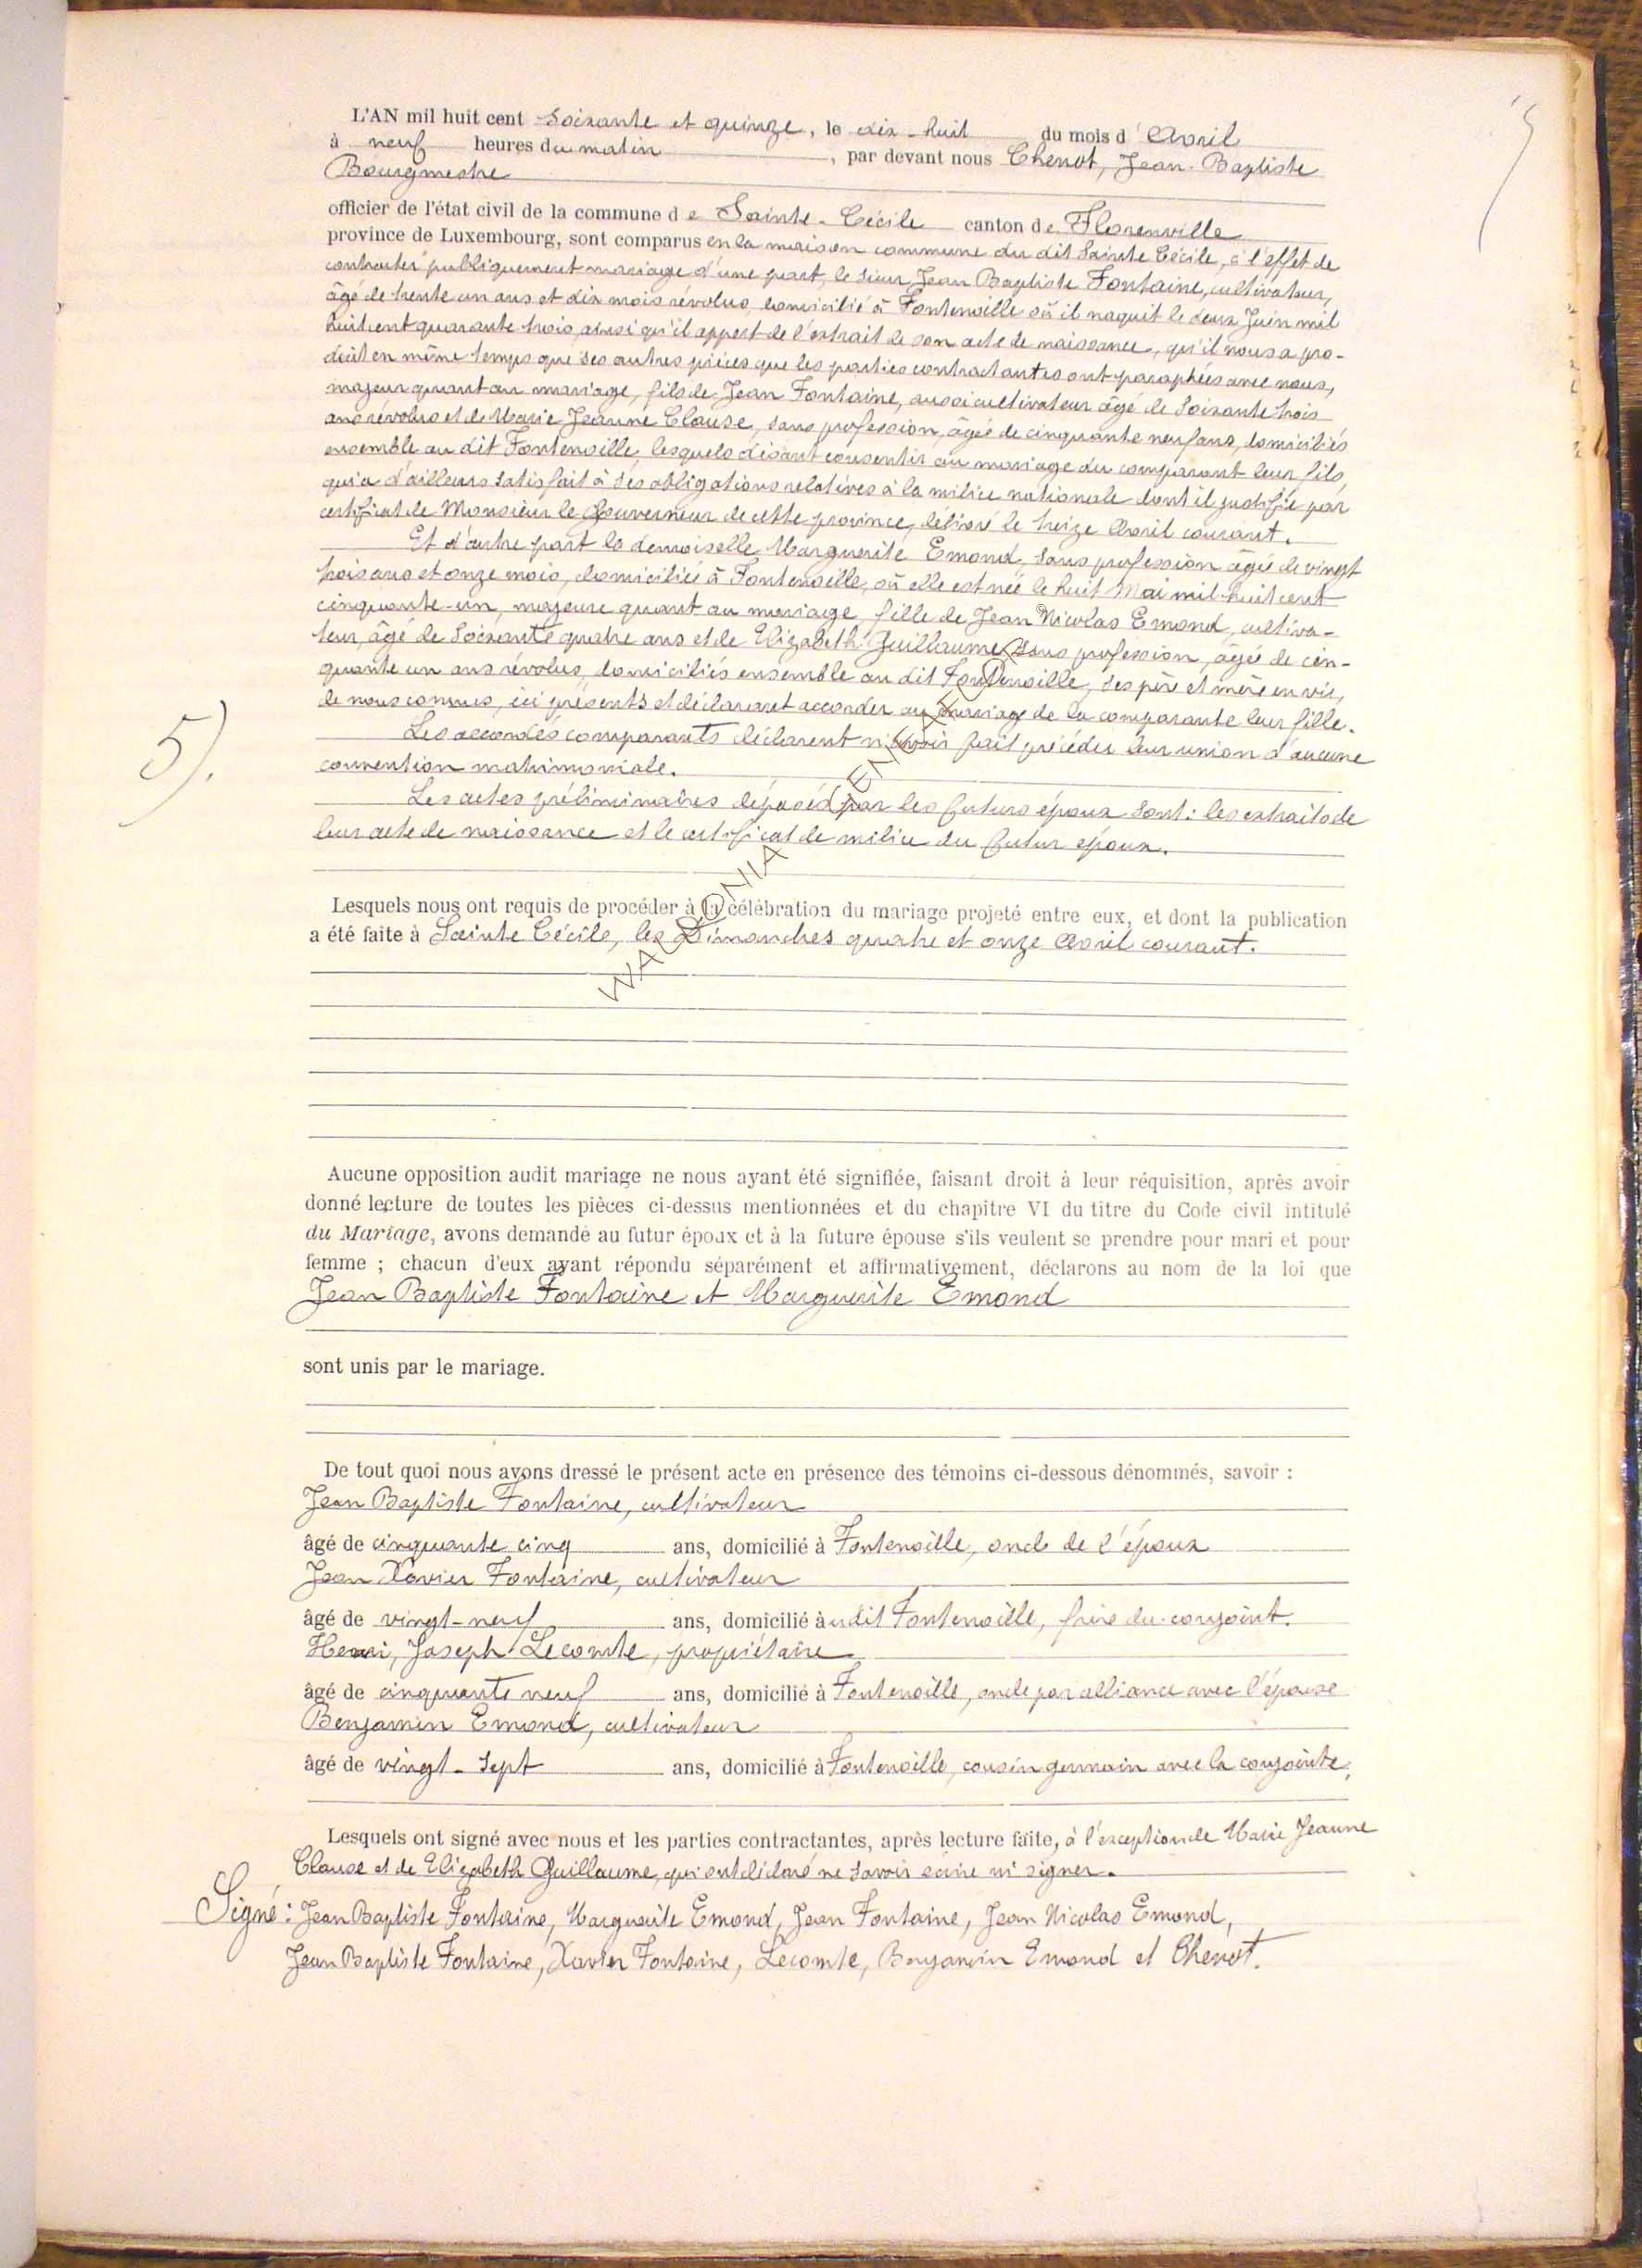 L'AN mil huit cent Soixante et quinze, le dix-huit du mois d'Avril
à neuf heures du matin, par devant nous Chenot, Jean-Baptiste
Bourgmestre
officier de l'état civil de la commune de Sainte-Cécile canton de Florenville
province de Luxembourg, sont comparus en la maison commune du dit Sainte Cécile, à l'effet de
contracter publiquement mariage d'une part, le sieur Jean Baptiste Fontaine, cultivateur,
âgé de trente un ans et dix mois révolus, domicilié à Fontenoille où il naquit le deux Juin mil
huit cent quarante trois, ainsi qu'il appert de l'extrait de son acte de naissance, qu'il nous a pro-
duit en même temps que ses autres pièces que les parties contractantes ont paraphées avec nous,
majeur quant au mariage, fils de Jean Fontaine, aussi cultivateur âgé de Soixante trois
ans révolus et de Marie Jeanne Clause, sans profession, âgée de cinquante neuf ans, domiciliés
ensemble au dit Fontenoille, lesquels disant consentir au mariage du comparant leur fils,
qui a d'ailleurs satisfait à ses obligations relatives à la milice nationale dont il justifie par
certificat de Monsieur le Gouverneur de cette province, délivré le treize Avril courant.
Et d'autre part la demoiselle Marguerite Emond, sans profession âgée de vingt
trois ans et onze mois, domiciliée à Fontenoille, où elle est née le huit Mai mil-huit cent
cinquante-un, majeure quant au mariage, fille de Jean Nicolas Emond, cultiva-
teur, âgé de Soixante quatre ans et de Elizabeth Guillaume sans profession, âgée de cin-
quante un ans révolus, domiciliés ensemble au dit Fontenoille, ses père et mère en vie,
de nous connus, ici présents et déclarant accorder au mariage de la comparante leur fille.
5).
Les accordés comparants déclarent n'avoir fait précéder leur union d'aucune
convention matrimoniale.
Les actes préliminaires déposés par les futurs époux sont : les extraits de
leur acte de naissance et le certificat de milice du futur époux.
Lesquels nous ont requis de procéder à la célébration du mariage projeté entre eux, et dont la publication
a été faite à Sainte Cécile, les Dimanches quatre et onze Avril courant.
Aucune opposition audit mariage ne nous ayant été signifiée, faisant droit à leur réquisition, après avoir
donné lecture de toutes les pièces ci-dessus mentionnées et du chapitre VI du titre du Code civil intitulé
du Mariage, avons demandé au futur époux et à la future épouse s'ils veulent se prendre pour mari et pour
femme ; chacun d'eux ayant répondu séparément et affirmativement, déclarons au nom de la loi que
Jean Baptiste Fontaine et Marguerite Emond
sont unis par le mariage.
De tout quoi nous avons dressé le présent acte en présence des témoins ci-dessous dénommés, savoir :
Jean Baptiste Fontaine, cultivateur
âgé de cinquante cinq ans, domicilié à Fontenoille, oncle de l'époux
Jean Xavier Fontaine, cultivateur
âgé de vingt-neuf ans, domicilié àudit Fontenoille, frère du conjoint.
Henri, Joseph Lecomte, propriétaire
âgé de cinquante neuf ans, domicilié à Fontenoille, oncle par alliance avec l'épouse
Benjamin Emond, cultivateur
âgé de vingt-sept ans, domicilié à Fontenoille, cousin germain avec la conjointe.
Lesquels ont signé avec nous et les parties contractantes, après lecture faite, à l'exception de Marie Jeanne
Clause et de Elizabeth Guillaume, qui ont déclaré ne savoir écrire ni signer.
Signé : Jean Baptiste Fontaine, Marguerite Emond, Jean Fontaine, Jean Nicolas Emond,
Jean Baptiste Fontaine, Xavier Fontaine, Lecomte, Benjamin Emond et Chenot.